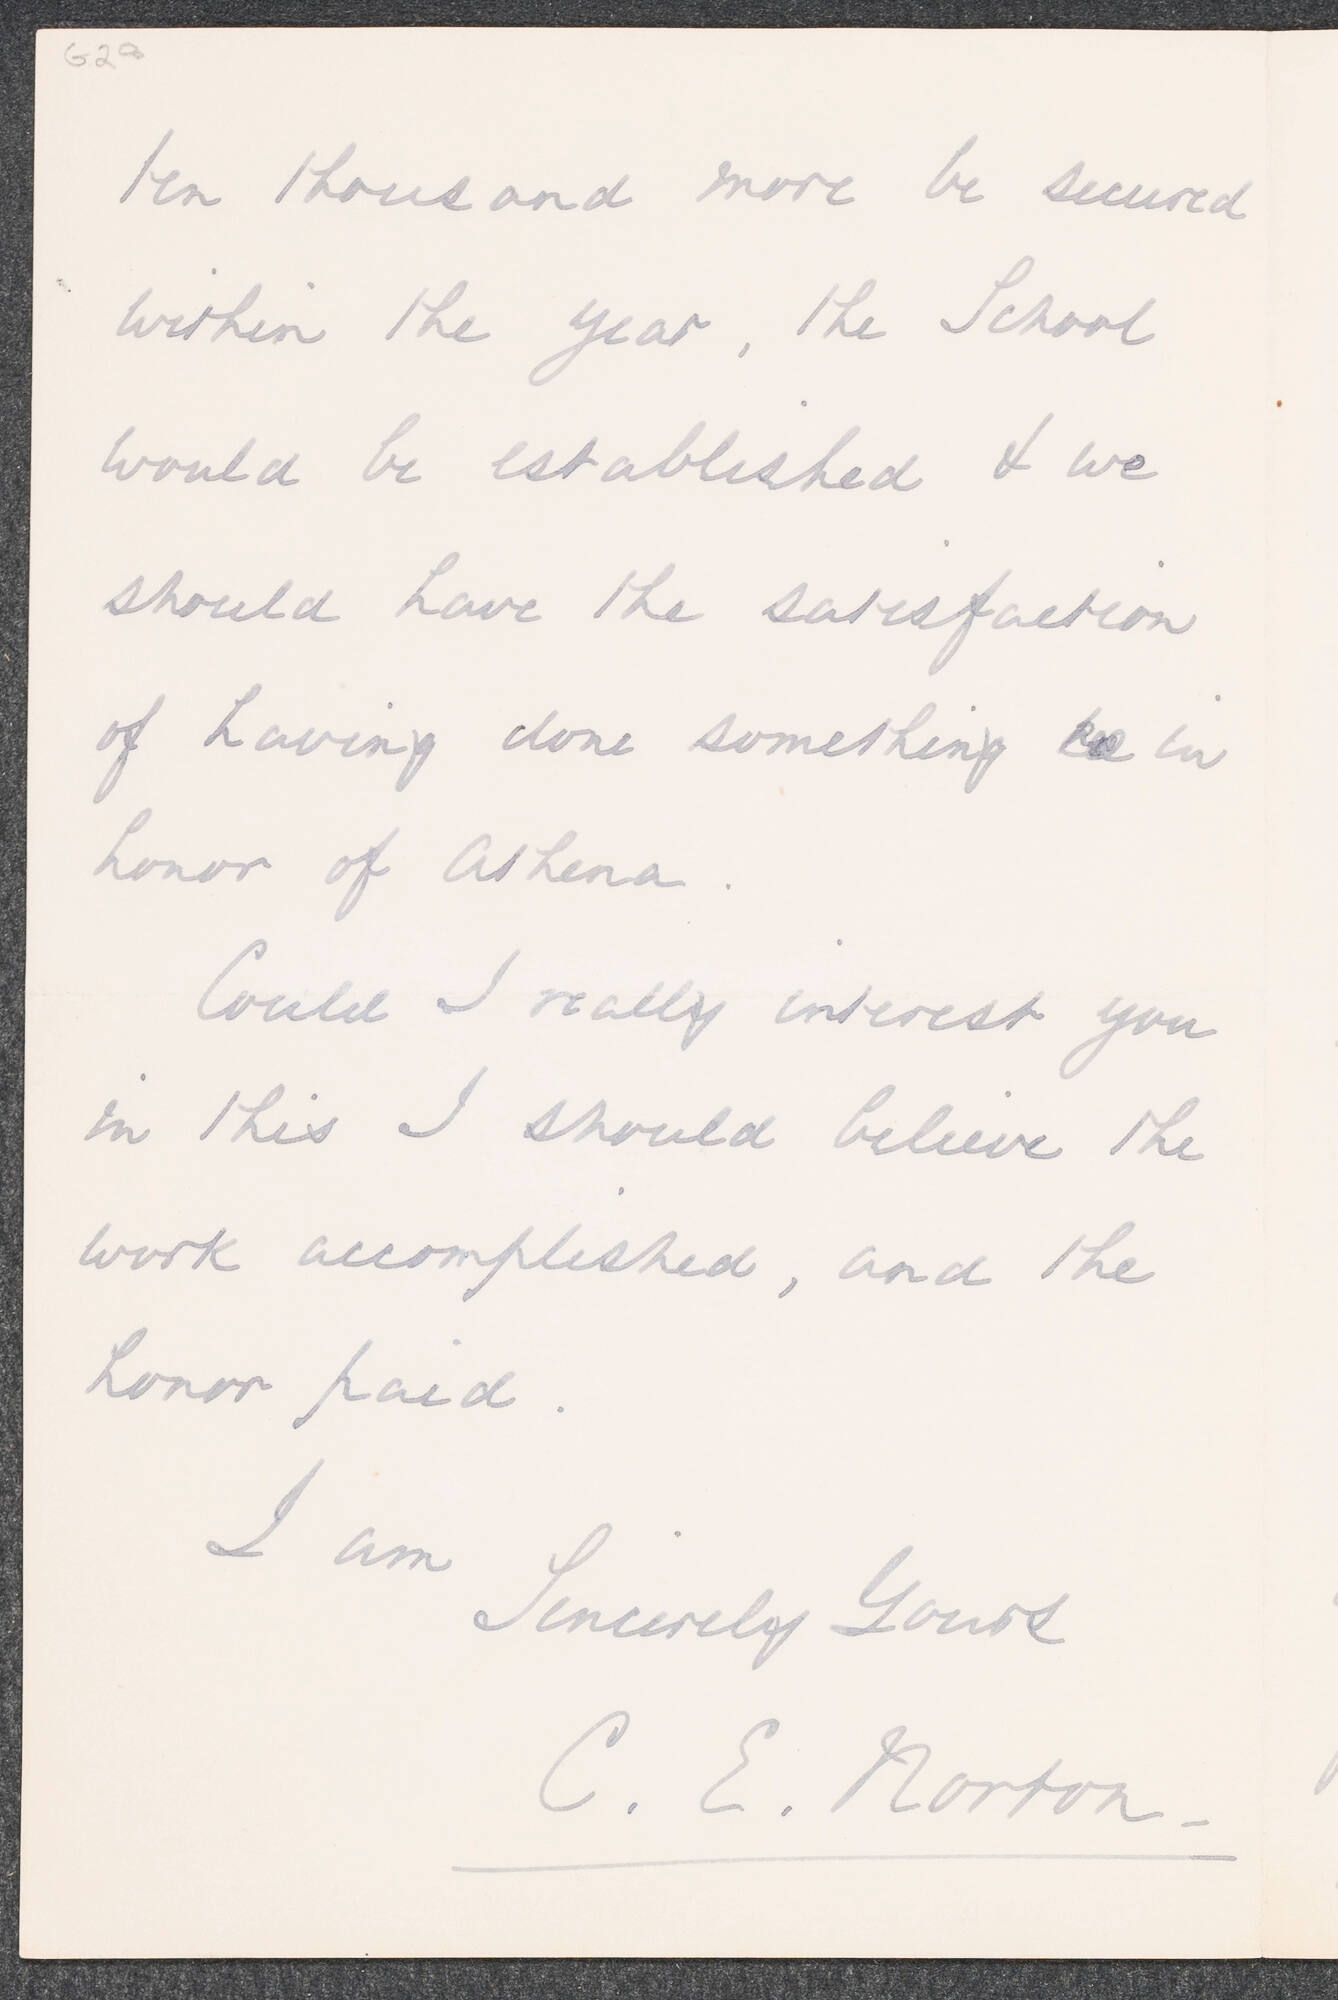 G28
ten thousand more be secured
within the year, the School
would be established & we
should have the satisfaction
of having done something in
honor of Athena.
Could I really interest you
in this I should believe the
work accomplished, and the
honor paid.
I am
Sincerely Yours
C. E. Norton-